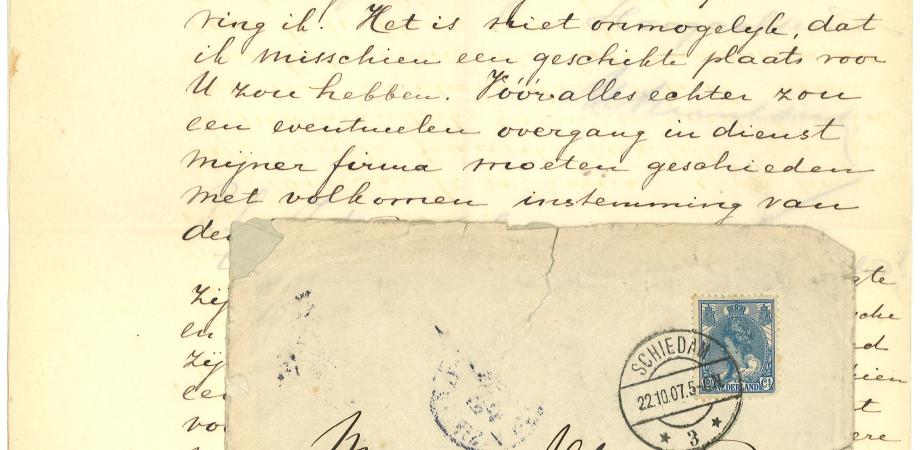 ring ik! Het is niet onmogelijk, dat
ik misschien een geschikte plaats voor
U zou hebben. Vóór alles echter zou
een eventueelen overgang in dienst
mijner firma moeten geschieden
met volkomen instemming van
den
Zij
en
Zij
een
voo
ste
sche
nd
hien
t
ere
SCHIEDAM
22.10.07.5-6N
3
NEDERLAND